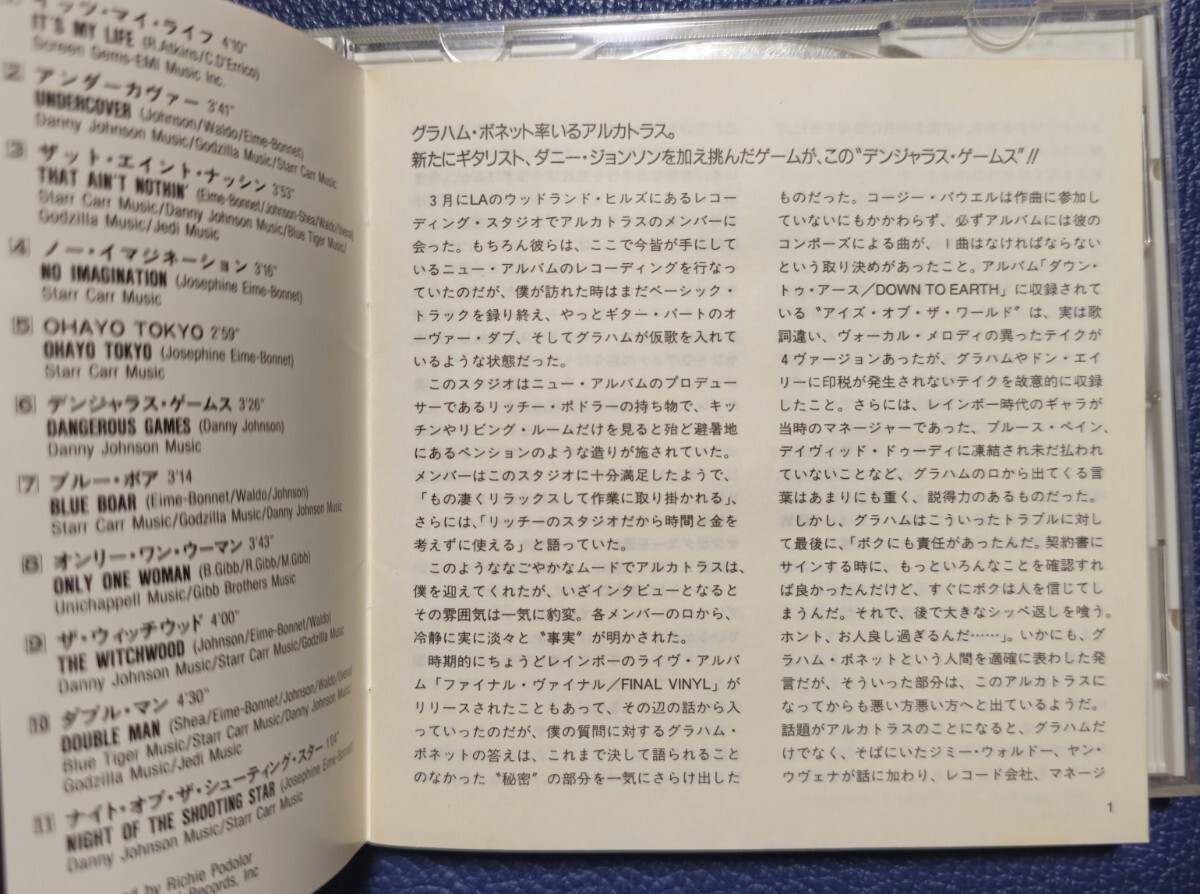 イッツ・マイ・ライフ 4'10"
IT'S MY LIFE (R.Atkins/C.D'Errico)
Screen Gems-EMI Music Inc.
2 アンダーカヴァー 3'41"
UNDERCOVER (Johnson/Waldo/Eime-Bonnet)
Danny Johnson Music/Godzilla Music/Starr Carr Music
3 ザット・エイント・ナッシン 3'53"
THAT AIN'T NOTHIN' (Eime-Bonnet/Johnson-Shea/Waldo/Uvena)
Starr Carr Music/Danny Johnson Music/Blue Tiger Music/
Godzilla Music/Jedi Music
4 ノー・イマジネーション 3'16"
NO IMAGINATION (Josephine Eime-Bonnet)
Starr Carr Music
5 OHAYO TOKYO 2'59"
OHAYO TOKYO (Josephine Eime-Bonnet)
Starr Carr Music
6 デンジャラス・ゲームス 3'26"
DANGEROUS GAMES (Danny Johnson)
Danny Johnson Music
7 ブルー・ボア 3'14
BLUE BOAR (Eime-Bonnet/Waldo/Johnson)
Starr Carr Music/Godzilla Music/Danny Johnson Music
8 オンリー・ワン・ウーマン 3'43"
ONLY ONE WOMAN (B.Gibb/R.Gibb/M.Gibb)
Unichappell Music/Gibb Brothers Music
9 ザ・ウィッチウッド 4'00"
THE WITCHWOOD (Johnson/Eime-Bonnet/Waldo)
Danny Johnson Music/Starr Carr Music/Godzilla Music
10 ダブル・マン 4'30"
DOUBLE MAN (Shea/Eime-Bonnet/Johnson/Waldo/Uvena)
Blue Tiger Music/Starr Carr Music/Danny Johnson Music/
Godzilla Music/Jedi Music
11 ナイト・オブ・ザ・シューティング・スター 1'04"
NIGHT OF THE SHOOTING STAR (Josephine Eime-Bonnet)
Danny Johnson Music/Starr Carr Music
by Richie Podolor
Records, Inc
グラハム・ボネット率いるアルカトラス。
新たにギタリスト、ダニー・ジョンソンを加え挑んだゲームが、この"デンジャラス・ゲームス"!!
3月にLAのウッドランド・ヒルズにあるレコー
ディング・スタジオでアルカトラスのメンバーに
会った。もちろん彼らは、ここで今皆が手にして
いるニュー・アルバムのレコーディングを行なっ
ていたのだが、僕が訪れた時はまだベーシック・
トラックを録り終え、やっとギター・パートのオ
ーヴァー・ダブ、そしてグラハムが仮歌を入れて
いるような状態だった。
このスタジオはニュー・アルバムのプロデュー
サーであるリッチー・ポドラーの持ち物で、キッ
チンやリビング・ルームだけを見ると殆ど避暑地
にあるペンションのような造りが施されていた。
メンバーはこのスタジオに十分満足したようで、
「もの凄くリラックスして作業に取り掛かれる」、
さらには、「リッチーのスタジオだから時間と金を
考えずに使える」と語っていた。
このようななごやかなムードでアルカトラスは、
僕を迎えてくれたが、いざインタビューとなると
その雰囲気は一気に豹変。各メンバーの口から、
冷静に実に淡々と〝事実〟が明かされた。
時期的にちょうどレインボーのライヴ・アルバ
ム「ファイナル・ヴァイナル/FINAL VINYL」が
リリースされたこともあって、その辺の話から入
っていったのだが、僕の質問に対するグラハム・
ボネットの答えは、これまで決して語られること
のなかった〝秘密〟の部分を一気にさらけ出した
ものだった。コージー・パウエルは作曲に参加し
ていないにもかかわらず、必ずアルバムには彼の
コンポーズによる曲が、1曲はなければならない
という取り決めがあったこと。アルバム「ダウン・
トゥ・アース/DOWN TO EARTH」に収録されて
いる〝アイズ・オブ・ザ・ワールド〟は、実は歌
詞違い、ヴォーカル・メロディの異ったテイクが
4ヴァージョンあったが、グラハムやドン・エイ
リーに印税が発生されないテイクを故意的に収録
したこと。さらには、レインボー時代のギャラが
当時のマネージャーであった、ブルース・ペイン、
デイヴィッド・ドゥーディに凍結され未だ払われ
ていないことなど、グラハムの口から出てくる言
葉はあまりにも重く、説得力のあるものだった。
しかし、グラハムはこういったトラブルに対し
て最後に、「ボクにも責任があったんだ。契約書に
サインする時に、もっといろんなことを確認すれ
ば良かったんだけど、すぐにボクは人を信じてし
まうんだ。それで、後で大きなシッペ返しを喰う。
ホント、お人良し過ぎるんだ……」。いかにも、グ
ラハム・ボネットという人間を適確に表わした発
言だが、そういった部分は、このアルカトラスに
なってからも悪い方悪い方へと出ているようだ。
話題がアルカトラスのことになると、グラハムだ
けでなく、そばにいたジミー・ウォルドー、ヤン・
ウヴェナが話に加わり、レコード会社、マネージ
1